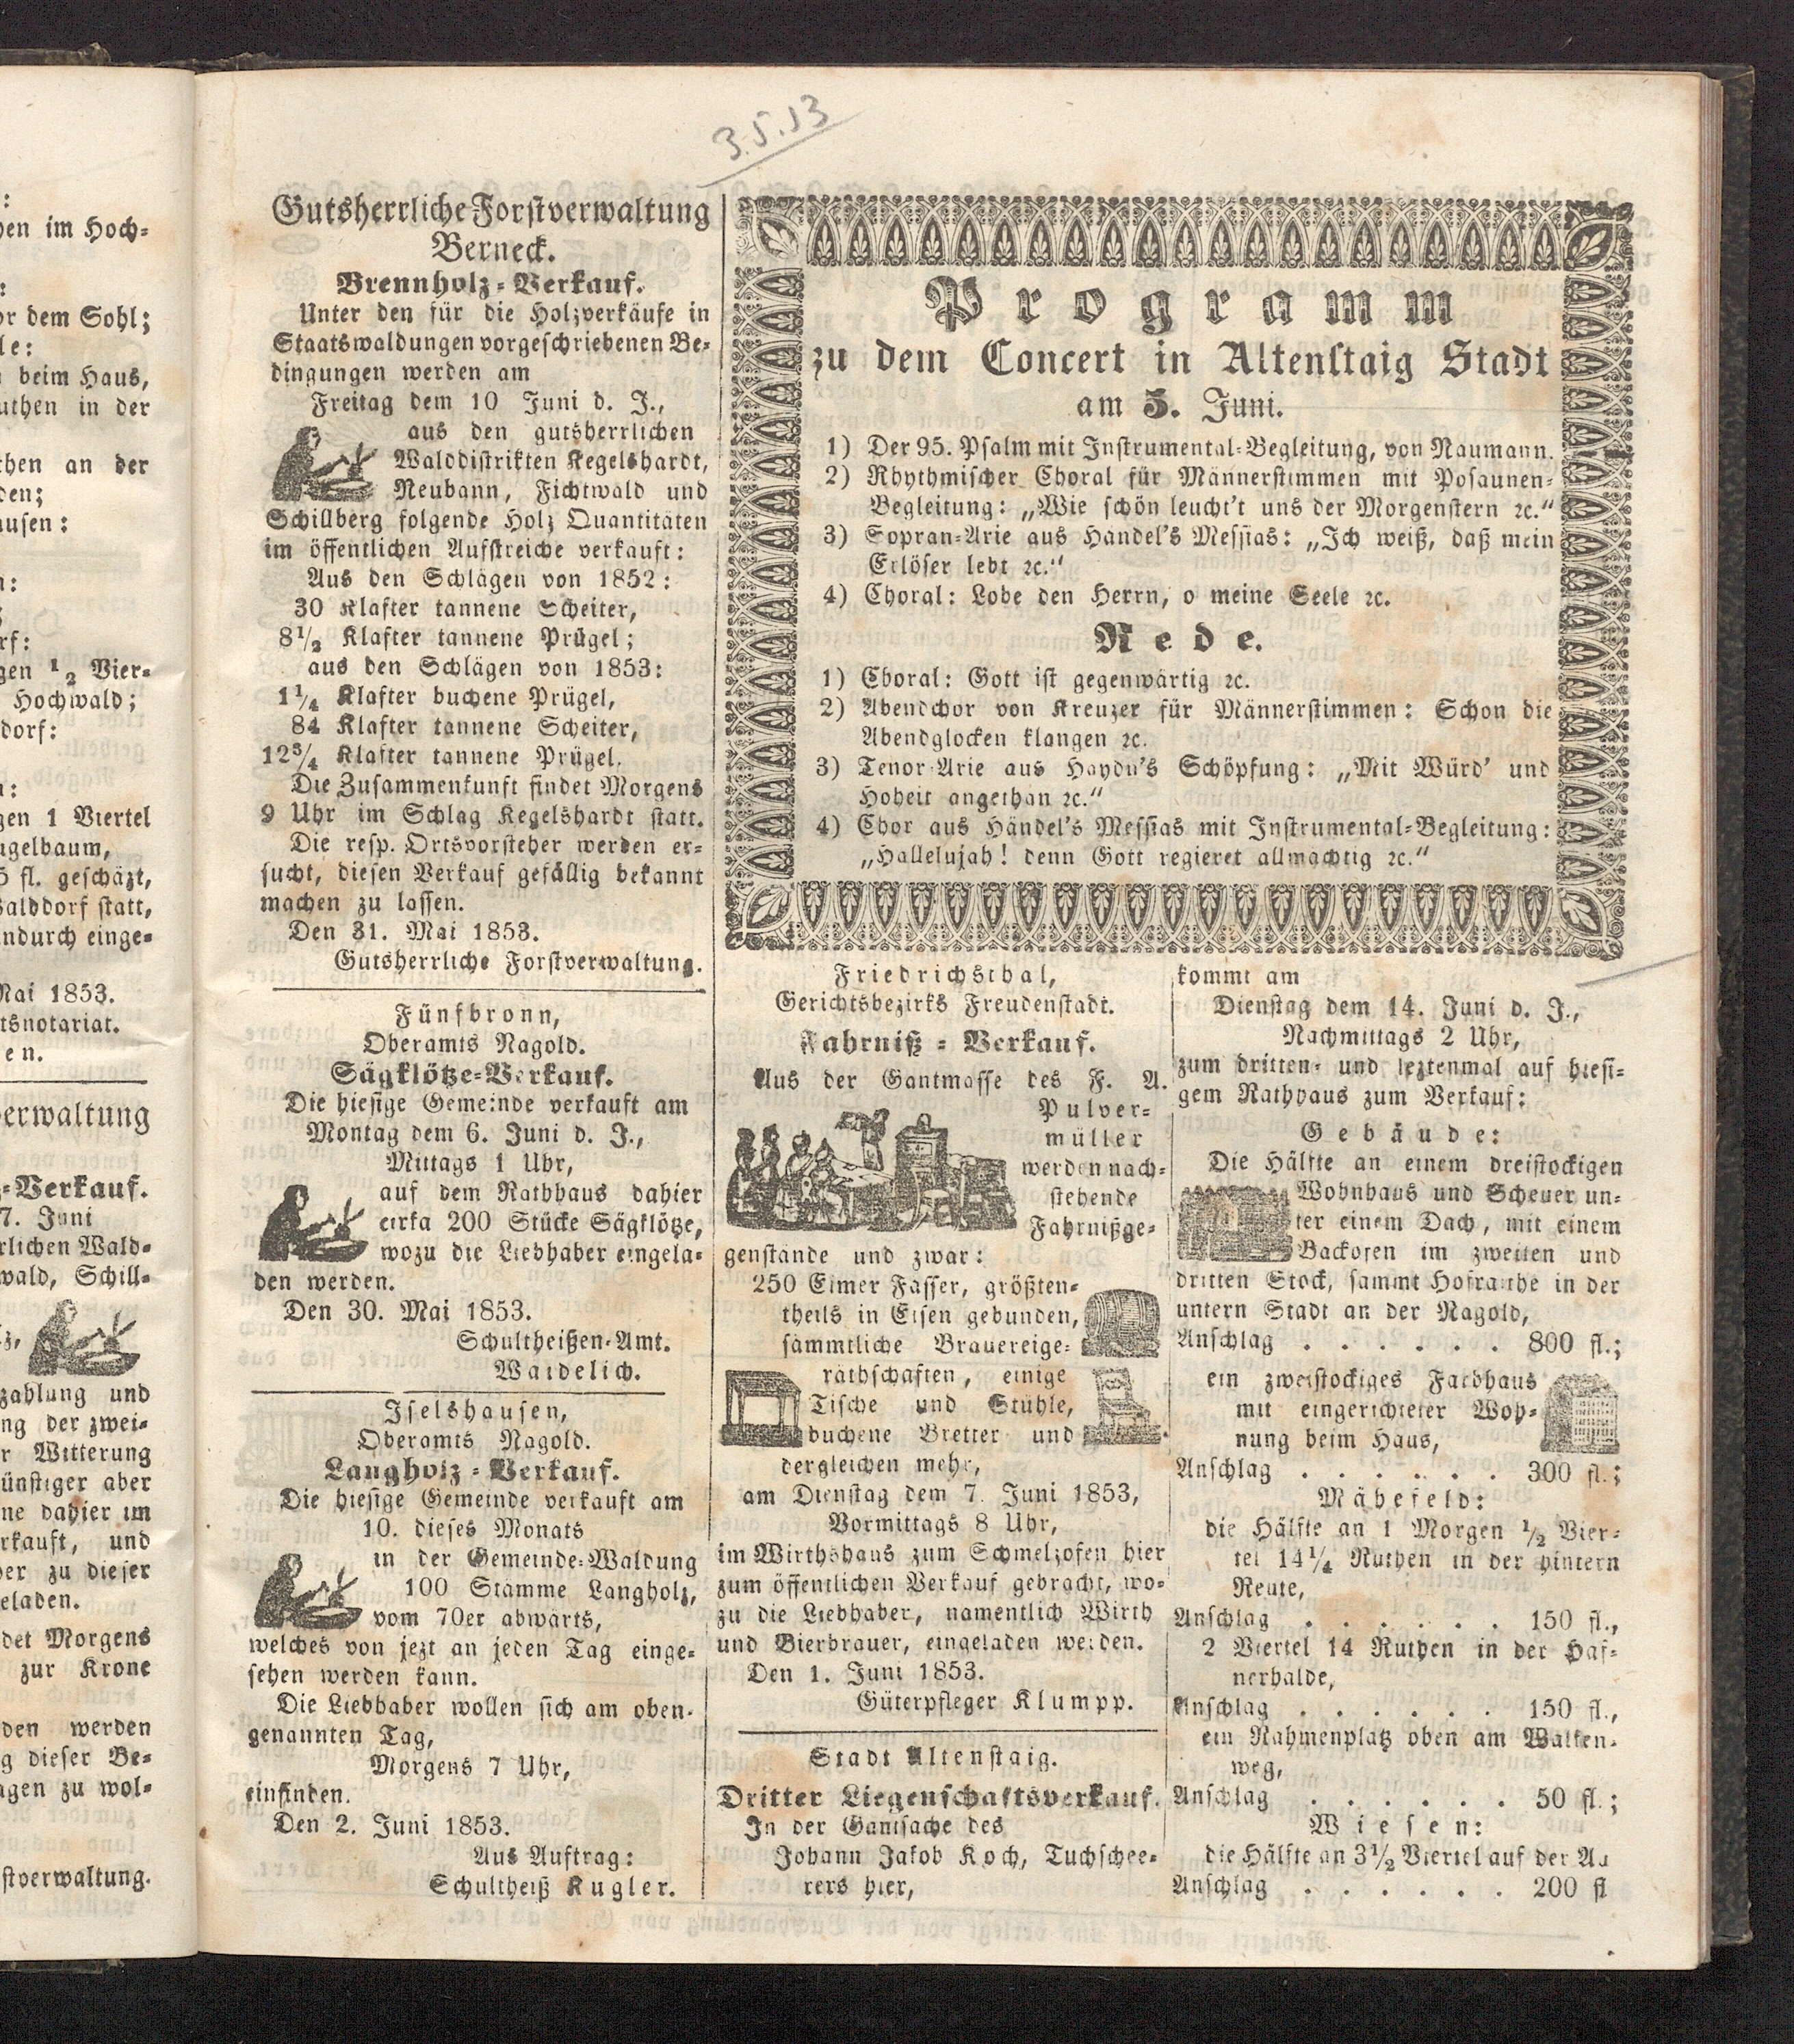 :
hen im Hoch-
:
or dem Sohl;
le:
beim Haus,
uthen in der
then an der
den;
ausen:
n:
rf:
gen 1/2 Vier-
Hochwald;
dorf:
n:
gen 1 Viertel
ugelbaum,
5 fl. geschäzt,
Walddorf statt,
endurch einge-
Mai 1853.
tsnotariat.
en.
verwaltung
-Verkauf.
7. Juni
rlichen Wald-
wald, Schill-
z,
zahlung und
ng der zwei-
r Witterung
günstiger aber
ne dahier im
rkauft, und
ber zu dieser
eladen.
det Morgens
zur Krone
den werden
g dieser Be-
agen zu wol-
stverwaltung.
3.5.53
Gutsherrliche Forstverwaltung
Berneck.
Brennholz-Verkauf.
Unter den für die Holzverkäufe in
Staatswaldungen vorgeschriebenen Be-
dingungen werden am
Freitag dem 10 Juni d. J.,
aus den gutsherrlichen
Walddistrikten Kegelshardt,
Neubann, Fichtwald und
Schillberg folgende Holz Quantitäten
im öffentlichen Aufstreiche verkauft:
Aus den Schlägen von 1852:
30 Klafter tannene Scheiter,
8 1/2 Klafter tannene Prügel;
aus den Schlägen von 1853:
1 1/4 Klafter buchene Prügel,
84 Klafter tannene Scheiter,
12 3/4 Klafter tannene Prügel.
Die Zusammenkunft findet Morgens
9 Uhr im Schlag Kegelshardt statt.
Die resp. Ortsvorsteher werden er-
sucht, diesen Verkauf gefällig bekannt
machen zu lassen.
Den 31. Mai 1853.
Gutsherrliche Forstverwaltung.
Fünfbronn,
Oberamts Nagold.
Sägklötze-Verkauf.
Die hiesige Gemeinde verkauft am
Montag dem 6. Juni d. J.,
Mittags 1 Uhr,
auf dem Rathhaus dahier
cirka 200 Stücke Sägklötze,
wozu die Liebhaber eingela-
den werden.
Den 30. Mai 1853.
Schultheißen-Amt.
Waidelich.
Iselshausen,
Oberamts Nagold.
Langholz-Verkauf.
Die hiesige Gemeinde verkauft am
10. dieses Monats
in der Gemeinde-Waldung
100 Stämme Langholz,
vom 70er abwärts,
welches von jezt an jeden Tag einge-
sehen werden kann.
Die Liebhaber wollen sich am oben-
genannten Tag,
Morgens 7 Uhr,
einfinden.
Den 2. Juni 1853.
Aus Auftrag:
Schultheiß Kugler.
Programm
zu dem Concert in Altenstaig Stadt
am 5. Juni.
1) Der 95. Psalm mit Instrumental-Begleitung, von Naumann.
2) Rhythmischer Choral für Männerstimmen mit Posaunen-
Begleitung: „Wie schön leucht't uns der Morgenstern ꝛc.“
3) Sopran-Arie aus Händel's Messias: „Ich weiß, daß mein
Erlöser lebt ꝛc.“
4) Choral: Lobe den Herrn, o meine Seele ꝛc.
Rede.
1) Choral: Gott ist gegenwärtig ꝛc.
2) Abendchor von Kreuzer für Männerstimmen: Schon die
Abendglocken klangen ꝛc.
3) Tenor-Arie aus Haydn's Schöpfung: „Mit Würd' und
Hoheit angethan ꝛc.“
4) Chor aus Händel's Messias mit Instrumental-Begleitung:
„Hallelujah! denn Gott regieret allmächtig ꝛc.“
Friedrichsthal,
Gerichtsbezirks Freudenstadt.
Fahrniß-Verkauf.
Aus der Gantmasse des F. A.
Pulver-
müller
werden nach-
stehende
Fahrnißge-
genstände und zwar:
250 Eimer Fässer, größten-
theils in Eisen gebunden,
sämmtliche Brauereige-
räthschaften, einige
Tische und Stühle,
buchene Bretter und
dergleichen mehr,
am Dienstag dem 7. Juni 1853,
Vormittags 8 Uhr,
im Wirthshaus zum Schmelzofen hier
zum öffentlichen Verkauf gebracht, wo-
zu die Liebhaber, namentlich Wirth
und Bierbrauer, eingeladen werden.
Den 1. Juni 1853.
Güterpfleger Klumpp.
Stadt Altenstaig.
Dritter Liegenschaftsverkauf.
In der Gantsache des
Johann Jakob Koch, Tuchschee-
rers hier,
kommt am
Dienstag dem 14. Juni d. J.,
Nachmittags 2 Uhr,
zum dritten- und leztenmal auf hiesi-
gem Rathhaus zum Verkauf:
Gebäude:
Die Hälfte an einem dreistockigen
Wohnhaus und Scheuer un-
ter einem Dach, mit einem
Backofen im zweiten und
dritten Stock, sammt Hofraithe in der
untern Stadt an der Nagold,
Anschlag . . . . . . 800 fl.;
ein zweistockiges Farbhaus
mit eingerichteter Woh-
nung beim Haus,
Anschlag . . . . . . 300 fl.;
Mähefeld:
die Hälfte an 1 Morgen 1/2 Vier-
tel 14 1/4 Ruthen in der hintern
Reute,
Anschlag . . . . . . 150 fl.,
2 Viertel 14 Ruthen in der Haf-
nerhalde,
Anschlag . . . . . . 150 fl.,
ein Rahmenplatz oben am Walken-
weg,
Anschlag . . . . . . 50 fl.;
Wiesen:
die Hälfte an 3 1/2 Viertel auf der Au
Anschlag . . . . . . 200 fl